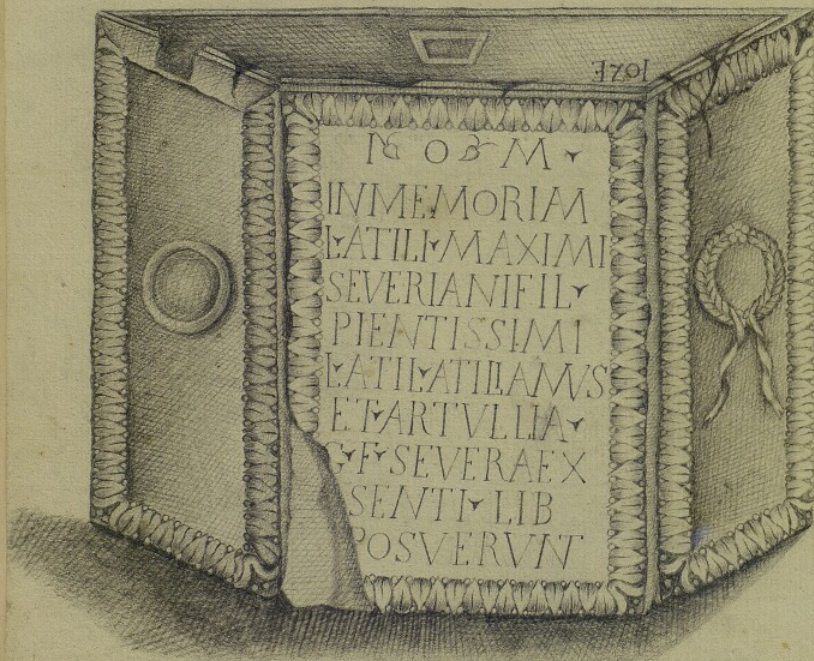 I O M ·
IN MEMORIAM
L·ATILI·MAXIMI
SEVERIANI FIL·
PIENTISSIMI
L·ATIL·ATILIANVS
ET·ARTVLLIA·
C·F·SEVERA EX
SENTI·LIB
POSVERVNT